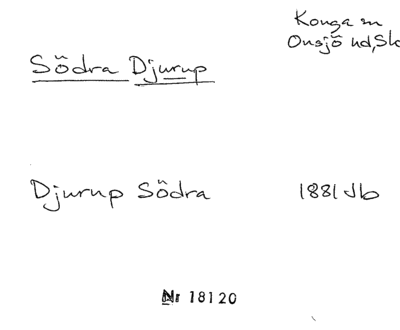 Konga sn
Onsjö hd, Sk
Södra Djurup
Djurup Södra 1881 Jb
Nr 18120